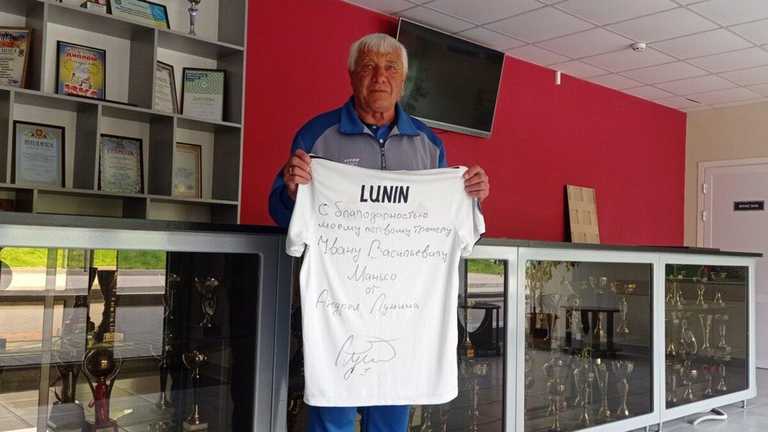 LUNIN
С благодарностью
моему первому тренеру
Ивану Васильевичу
Манько
от
Андрея Лунина